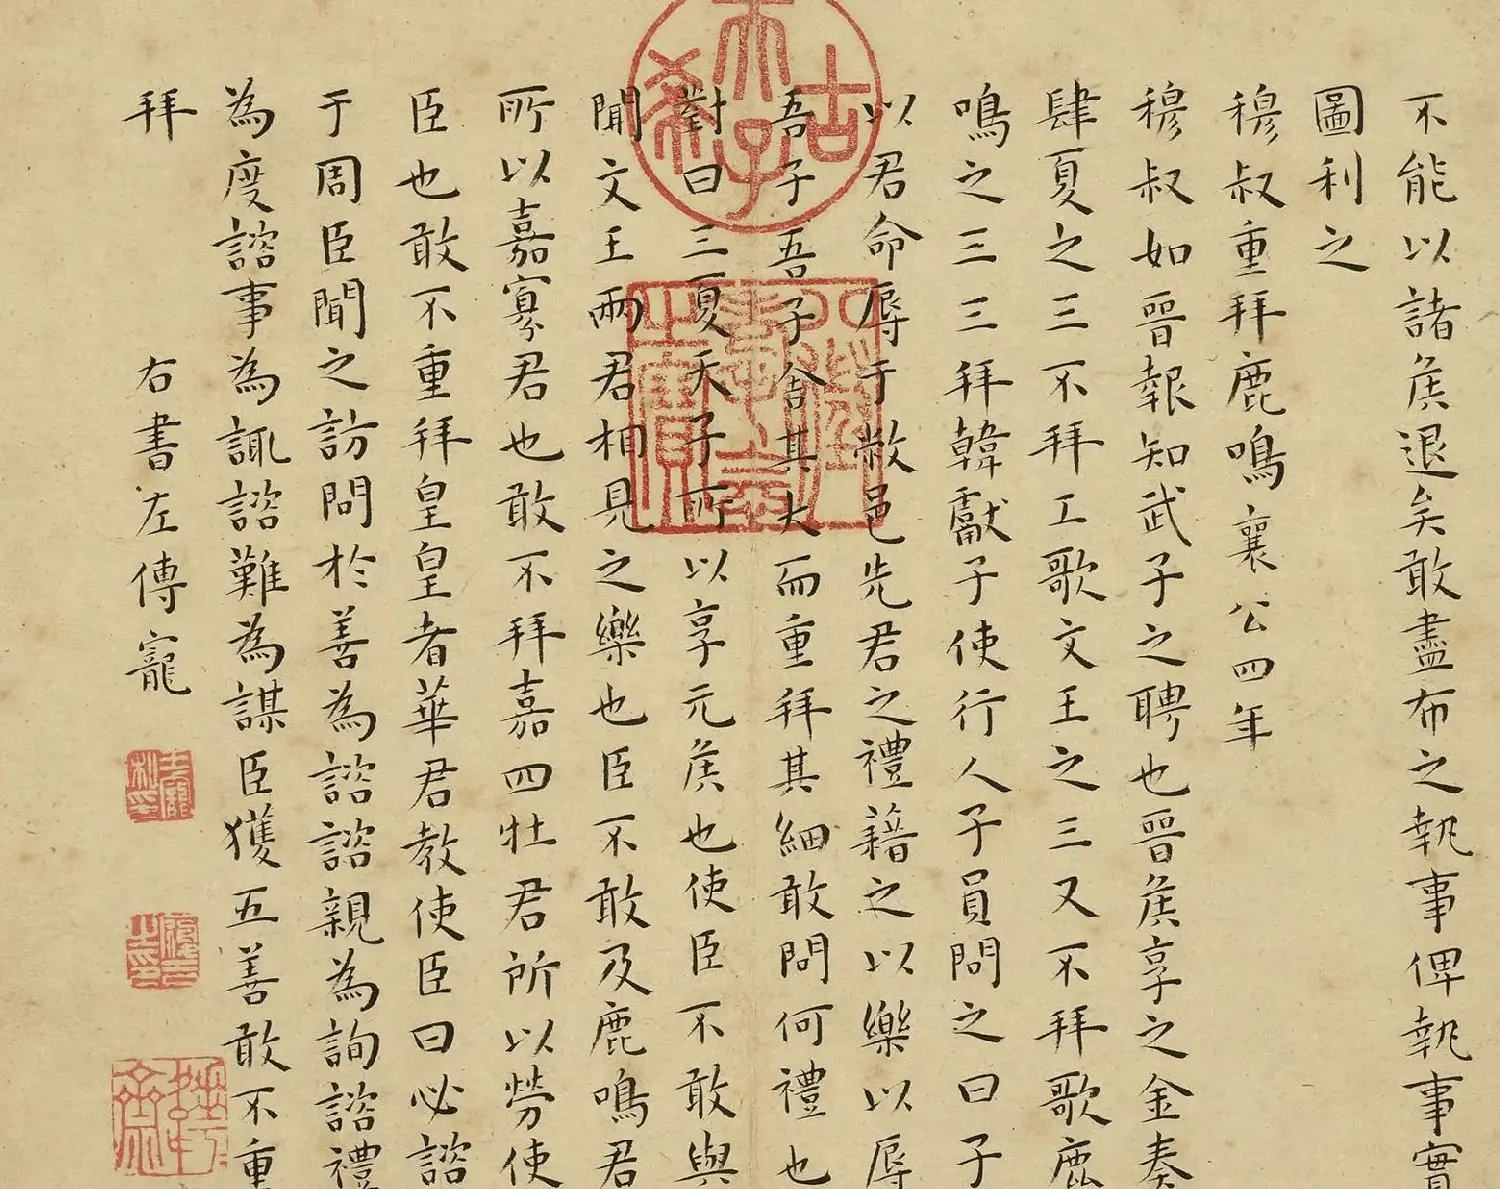 不能以諸侯退矣敢盡布之執事俾執事實
圖利之
穆叔重拜鹿鳴襄公四年
穆叔如晉報知武子之聘也晉侯享之金奏
肆夏之三不拜工歌文王之三又不拜歌鹿
鳴之三三拜韓獻子使行人子員問之曰子
以君命辱于敝邑先君之禮藉之以樂以辱
吾子吾子舍其大而重拜其細敢問何禮也
對曰三夏天子所以享元侯也使臣不敢與
聞文王兩君相見之樂也臣不敢及鹿鳴君
所以嘉寡君也敢不拜嘉四牡君所以勞使
臣也敢不重拜皇皇者華君教使臣曰必諮
于周臣聞之訪問於善為諮諮親為詢諮禮
為度諮事為諏諮難為謀臣獲五善敢不重
拜
右書左傳
寵
古希天子
八徵耄念之寶